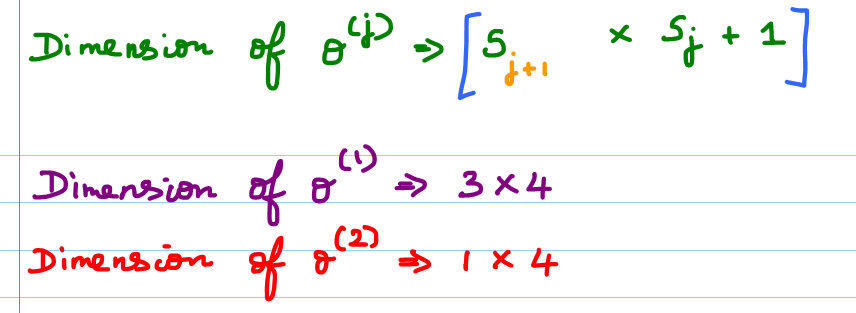 Dimension of θ^(j) ⇒ [S_{j+1} × S_j + 1]
Dimension of θ^(1) ⇒ 3 × 4
Dimension of θ^(2) ⇒ 1 × 4